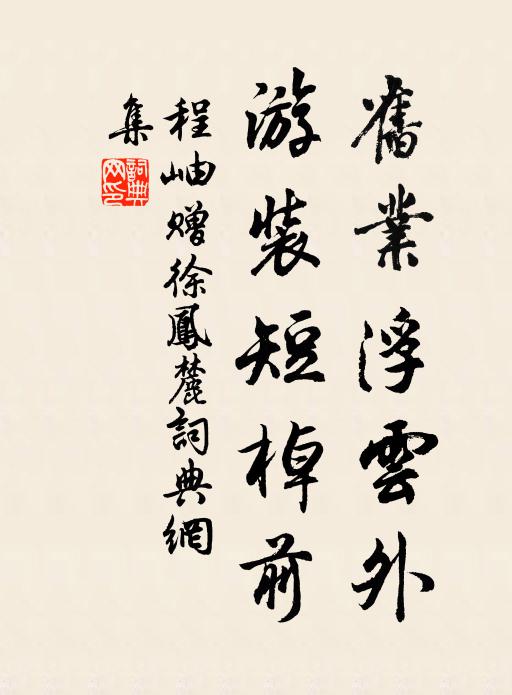 舊業浮雲外
游裝短棹前
程岫贈徐鳳麓詞典網
集
詞典網印